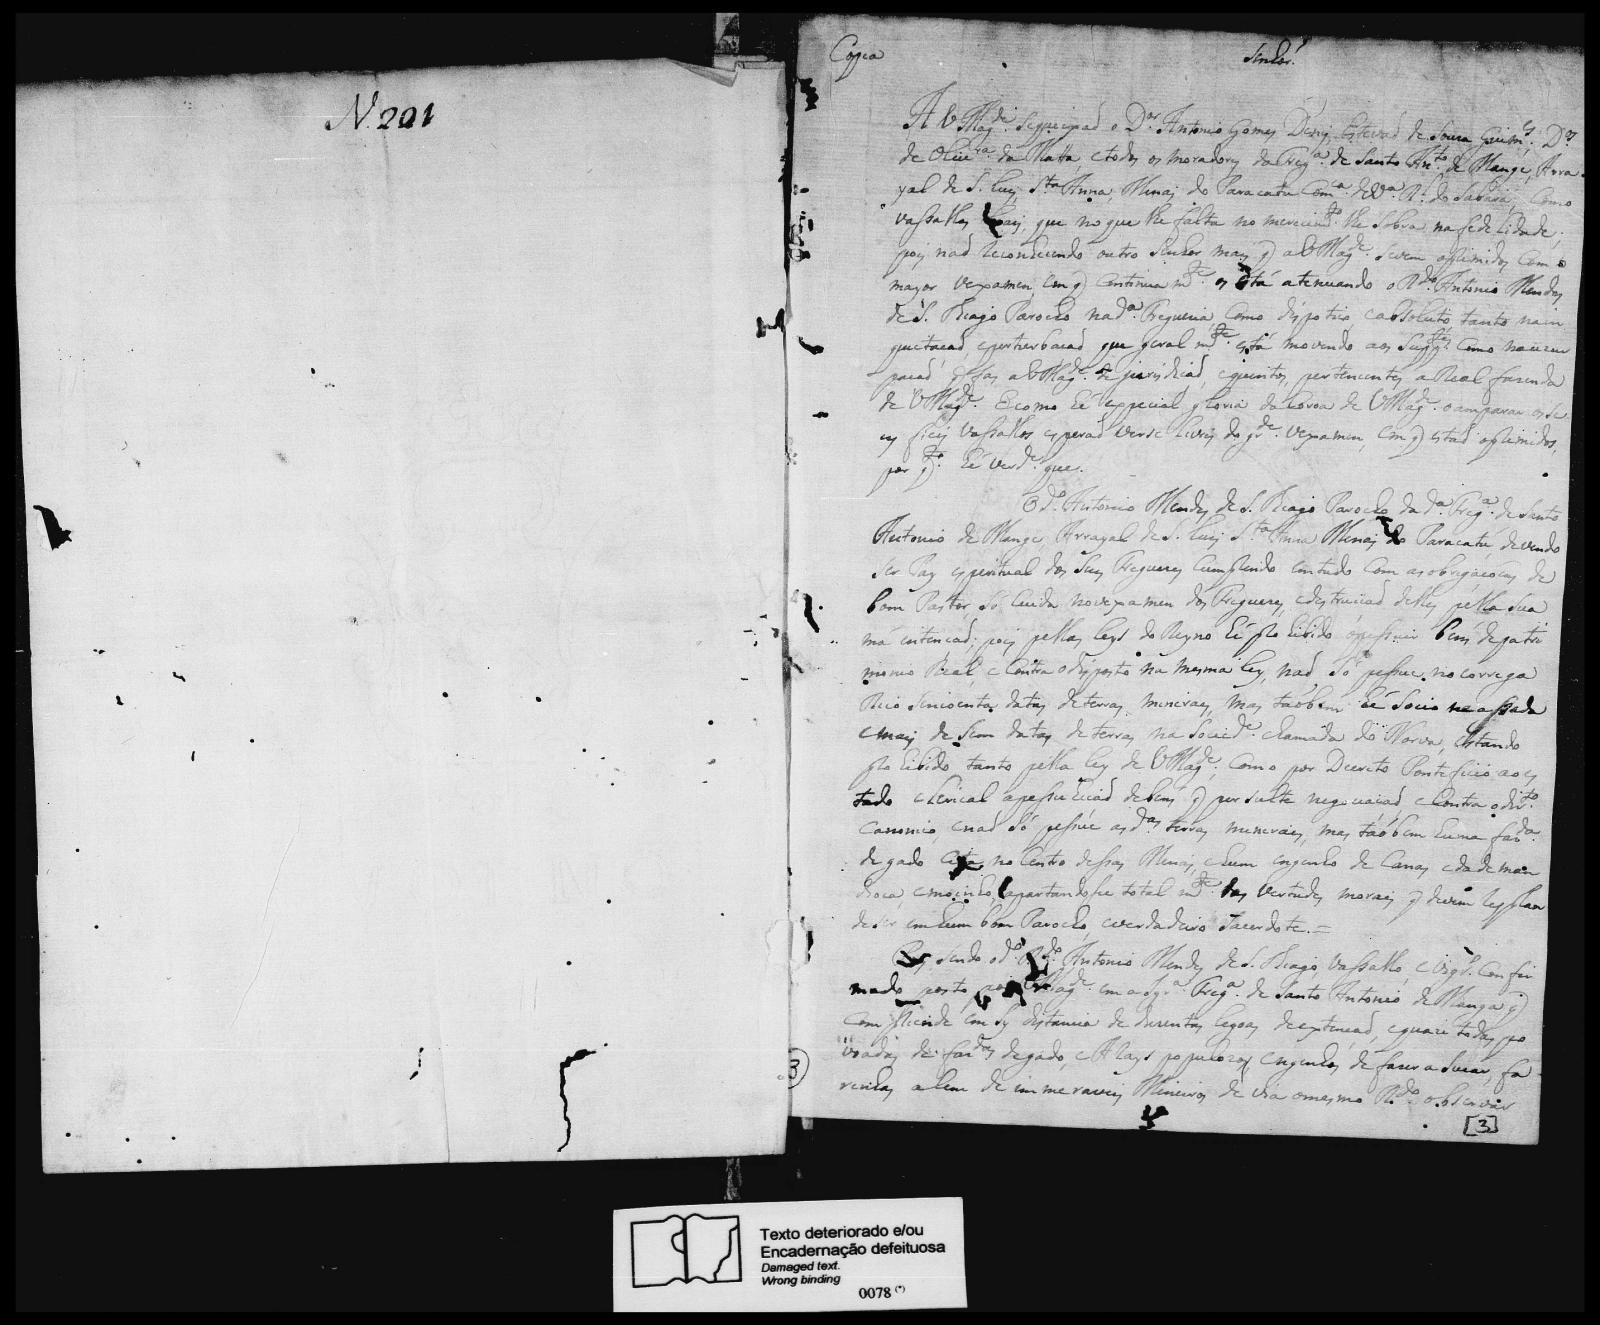 N. 201
Copia
Senhor.
A V Mag.de Segueyxaõ o D.or Antonio Gomes Diniz, Estevaõ de Souza Guim.es, D.os
de Oliu.ra da Matta, e todos os moradores da Freg.a de Santo Ant.o de Mange, Arra
yal de S. Luiz, S.ta Anna, Minas do Paracatu Com.ca da V.a R.l do Sabará, Como
Vassallos Leais, que no que lhe falta no merecim.to lhe Sobra na fedelidade,
pois naõ reconhecendo outro Senhor mais q a V Mag.de Sevem oprimidos Com o
mayor vexamen em q continua m.te os está atenuando o R.do Antonio Mendes
de S. Thiago Parocho na d.a Freguezia, Como dispotico e absoluto, tanto na in
quietacaõ, e perturbacaõ que geral m.te está movendo aos Supp.tes Como na uzur
pacaõ q faz a V Mag.de de jurisdicaõ, e quintos, pertencentes a Real fazenda
de V Mag.de. E como hé especial gloria da Coroa de V Mag.de o amparar os se
us fieis Vassallos esperaõ verse livres do gr.de vexamen, em q estaõ oprimidos,
por q.to hé verd.e que.
O d.o Antonio Mendes de S. Thiago Parocho da d.a Freg.a de Santo
Antonio de Mange, Arrayal de S. Luiz S.ta Anna Minas do Paracatu, devendo
ser Pay espiritual dos Seus Freguezes Cumprindo em tudo Com as obrigacoens de
bom Pastor, Só cuida no vexamen dos Freguezes, e destruicaõ delles, pella sua
má intencaõ; pois pellas leys do Reyno hé prohibido o possuir bens de patri
monio Real, e Contra o disposto na mesma ley, naõ Só possue no corrego
Rico Sincoenta datas de terras mineraes, mas taõbem hé Socio na assada
e mais de Sem datas de terras na Socied.e chamada do Norva, estando
prohibido tanto pella ley de V Mag.de, Como por Decreto Ponteficio ao es
tado clerical a possuicaõ de bens q por sulte negociacaõ, e Contra o dir.to
Canonico, e naõ Só possue as d.as terras mineraes, mas taõbem huma faz.da
de gado Cita no Centro dessas Minas, e hum engenho de Canas, e da de man
dioca, e moinho, apartandosse total m.te das vertudes morais q devem resplan
deser em hum bom Parocho, e verdadeiro Sacerdote. =
Pois sendo o d.o R.do Antonio Mendes de S. Thiago Vassallo, e Vigr.o Confir
mado posto por V Mag.de em a d.a Freg.a de Santo Antonio de Manga q
Comprehende em Sy distancia de duzentas legoas de extencaõ, e quazi todas po
voadas de faz.das de gado, e Alays populozos, engenhos de fazer asucar, fa
rinhas, alem de immeraveis Mineiros de via o mesmo R.do observar
3
[3]
Texto deteriorado e/ou
Encadernação defeituosa
Damaged text.
Wrong binding
0078 (*)